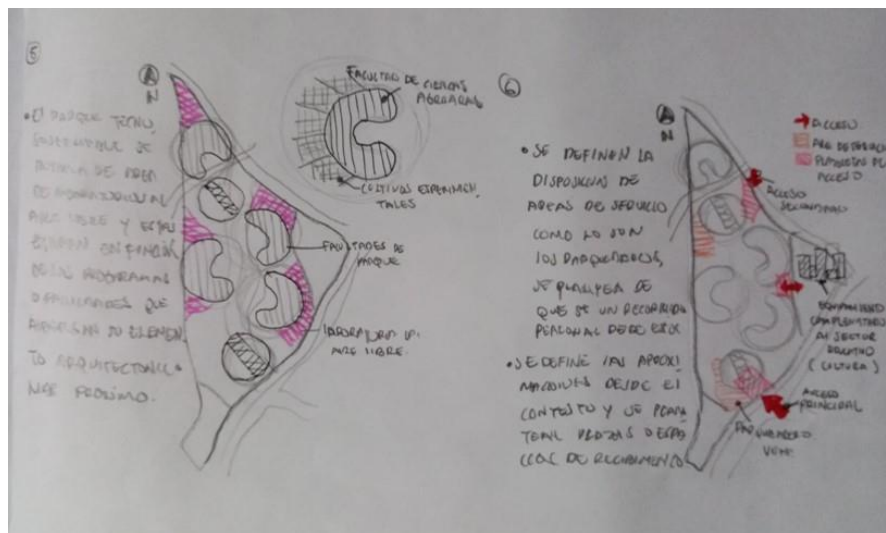 5
N
• El PARQUE TECNO
SE
DE AREA
AL
AIRE LIBRE Y ESTAS
EN FUNCIÓN
DE LOS PROGRAMAS
O FACULTADES QUE
SU ELEMEN
TO ARQUITECTONICO
MAS PROXIMO.
FACULTAD DE CIENCIAS
AGRARIAS
CULTIVOS EXPERIMEN
TALES
FACULTADES DE
PARQUE
LABORATORIO AL
AIRE LIBRE.
6
N
• SE DEFINEN LA
DISPOSICION DE
AREAS DE SERVICIO
COMO LO SON
LOS PARQUEADEROS,
SE PLANTEA DE
QUE SE UN RECORRIDO
PEATONAL DESDE
• SE DEFINE LAS APROXI
MACIONES DESDE El
CONTEXTO Y SE PLAN
TEAN PLAZAS O ESPA
CIOS DE RECIBIMIENTO
ACCESO
AREA DE SERVICIO
PLAZOLETAS DE
ACCESO
ACCESO
SECUNDARIO
EQUIPAMIENTO
COMPLEMENTARIO
AL SECTOR
EDUCATIVO
(CULTURA)
ACCESO
PRINCIPAL
PARQUEADERO